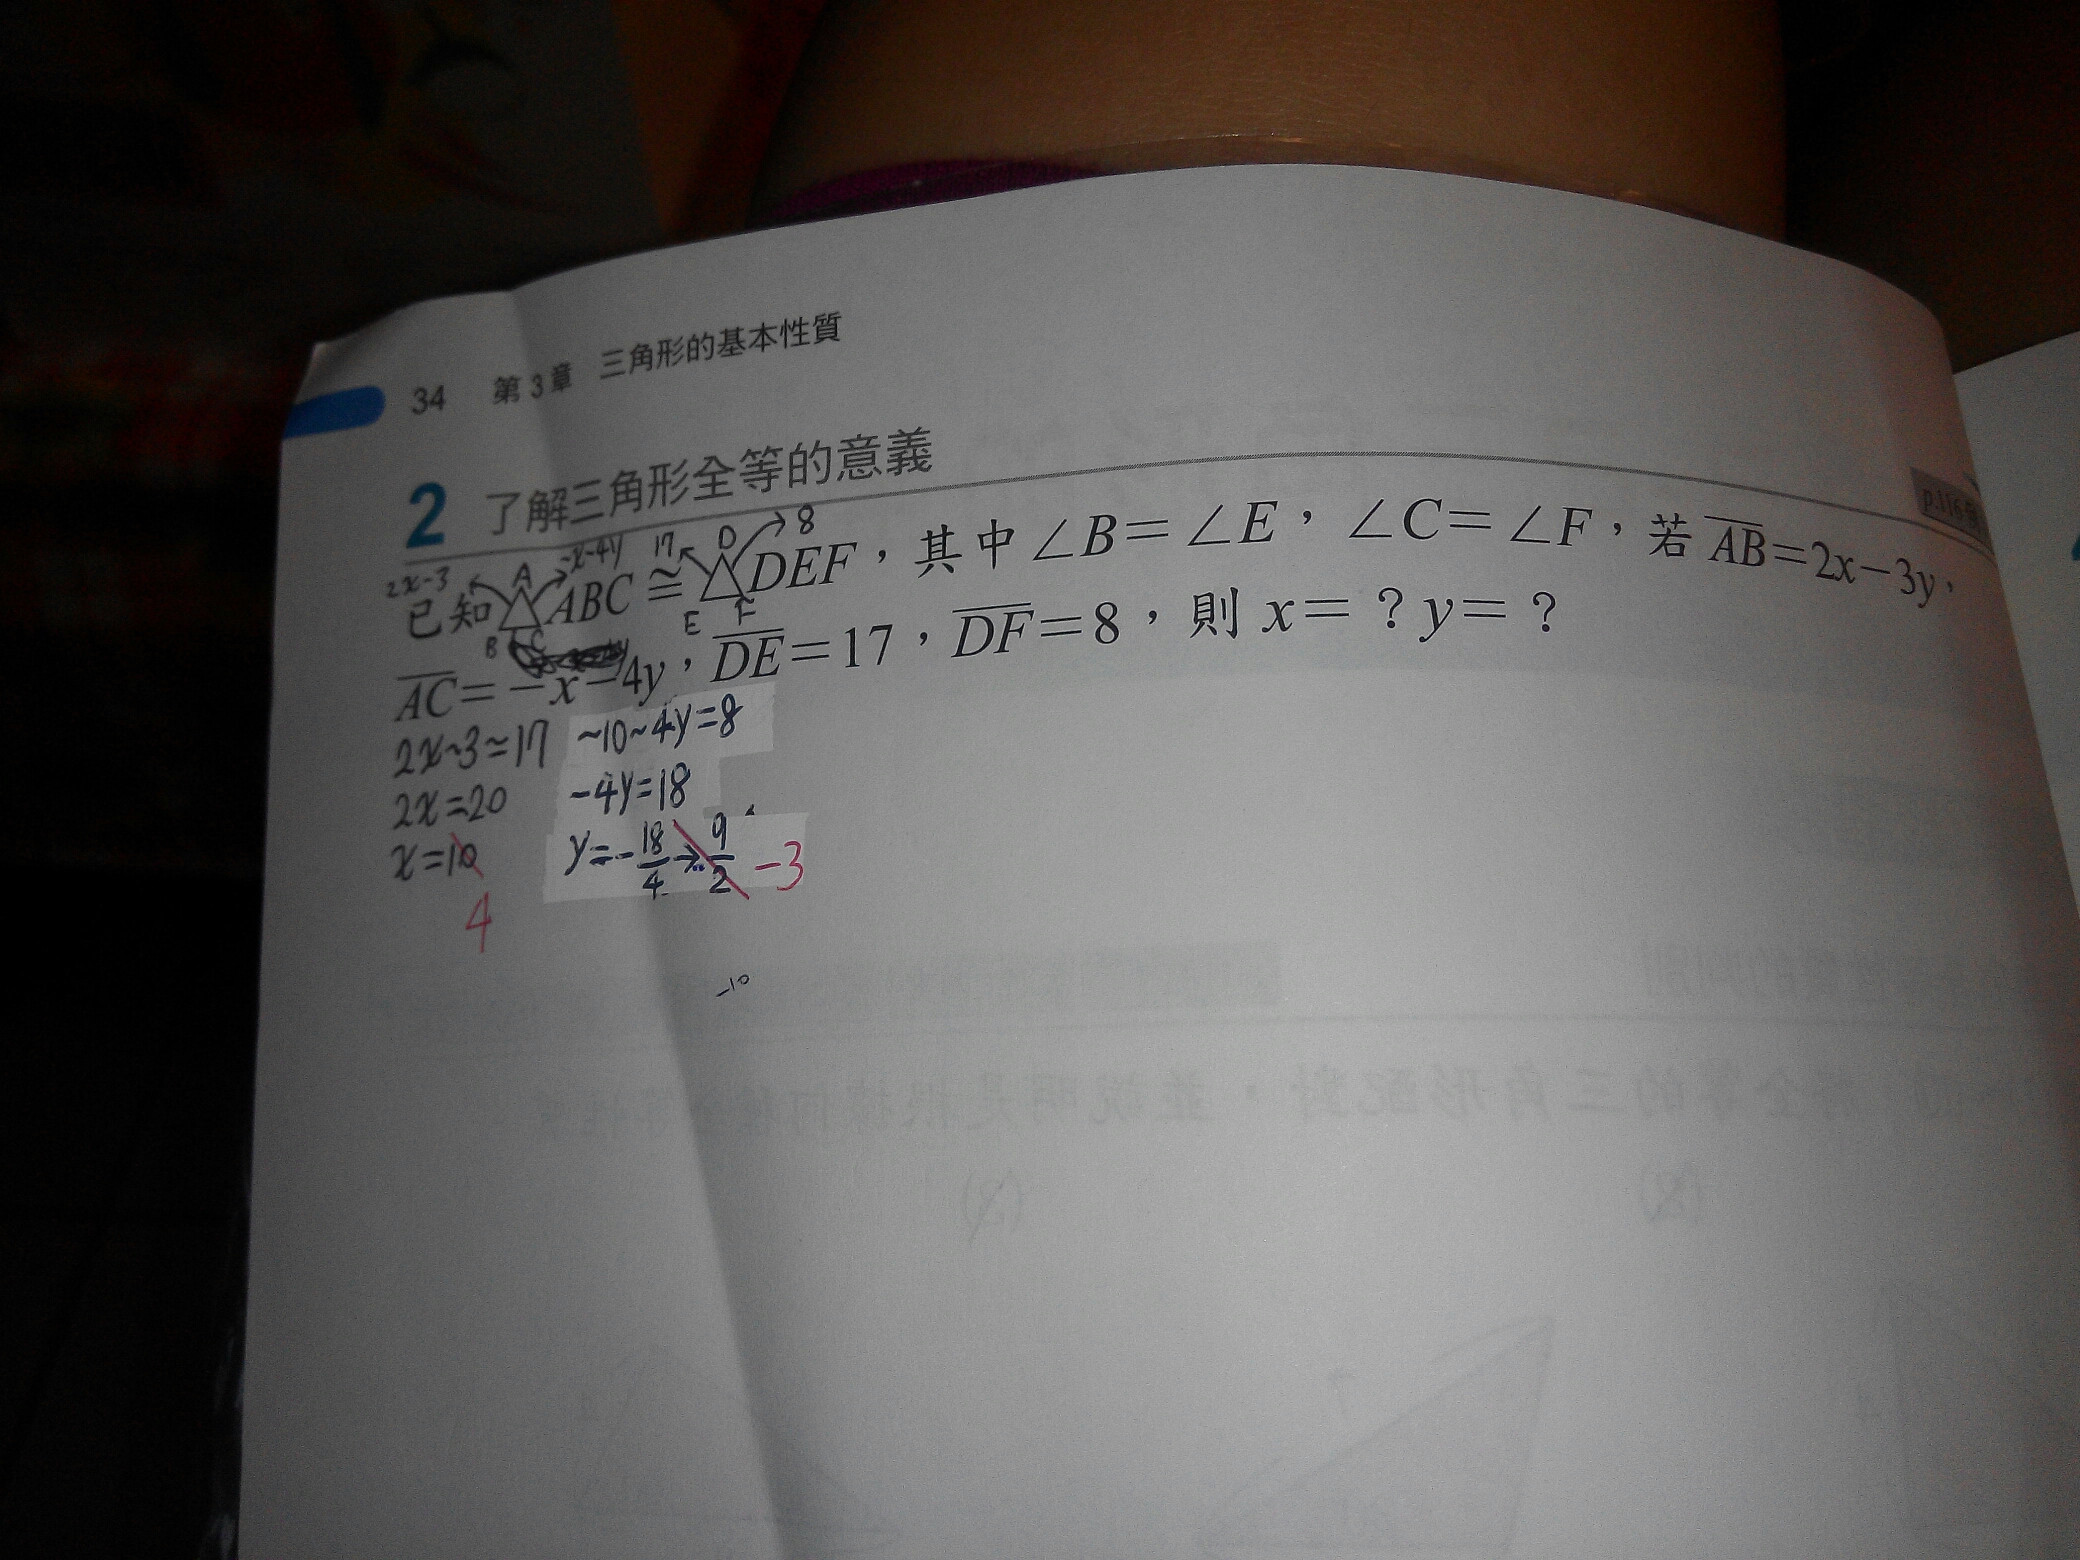 34 第3章 三角形的基本性質
2 了解三角形全等的意義
p.116
2x-3 A -x-4y 17 D 8
已知△ABC≅△DEF，其中∠B=∠E，∠C=∠F，若AB=2x-3y，
B C E F
AC=-x-4y，DE=17，DF=8，則x=？y=？
2x-3=17 -10-4y=8
2x=20 -4y=18
x=10 y=-18/4→9/2 -3
4
-10